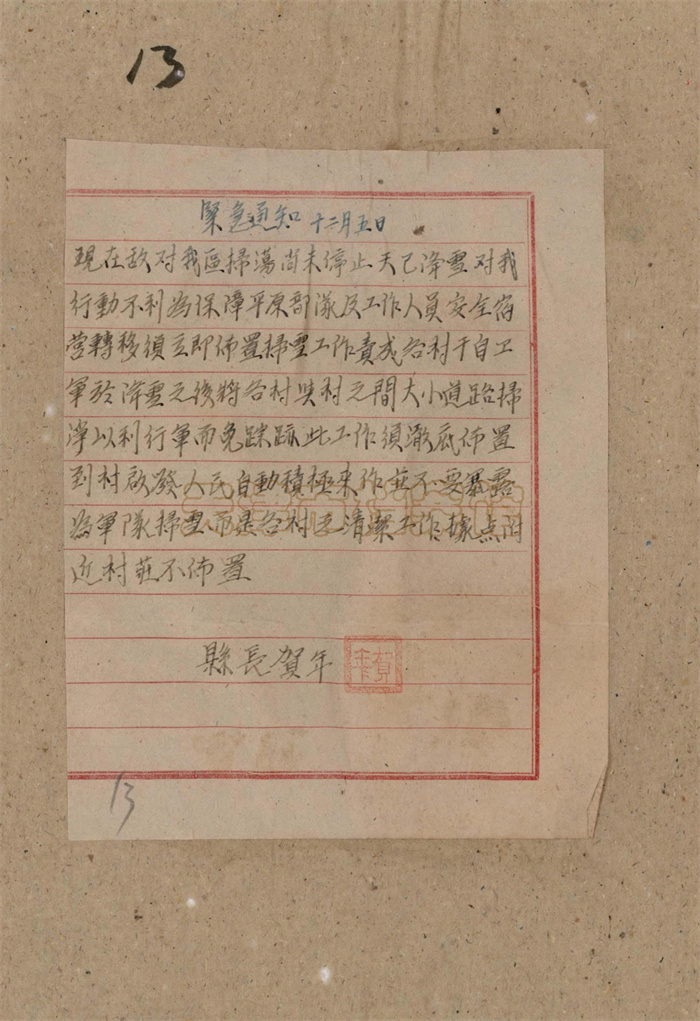 13
緊急通知 十二月五日
現在敌对我區掃蕩尚未停止天已降雪对我
行動不利為保障平原部隊及工作人員安全宿
营轉移須立即佈置掃雪工作責成各村干自卫
軍於降雪之後將各村與村之間大小道路掃
净以利行軍而免踪跡此工作須澈底佈置
到村啟發人民自動積極來作並不要暴露
為軍隊掃雪而是各村之清潔工作據点附
近村莊不佈置
縣長賀年
賀年
13